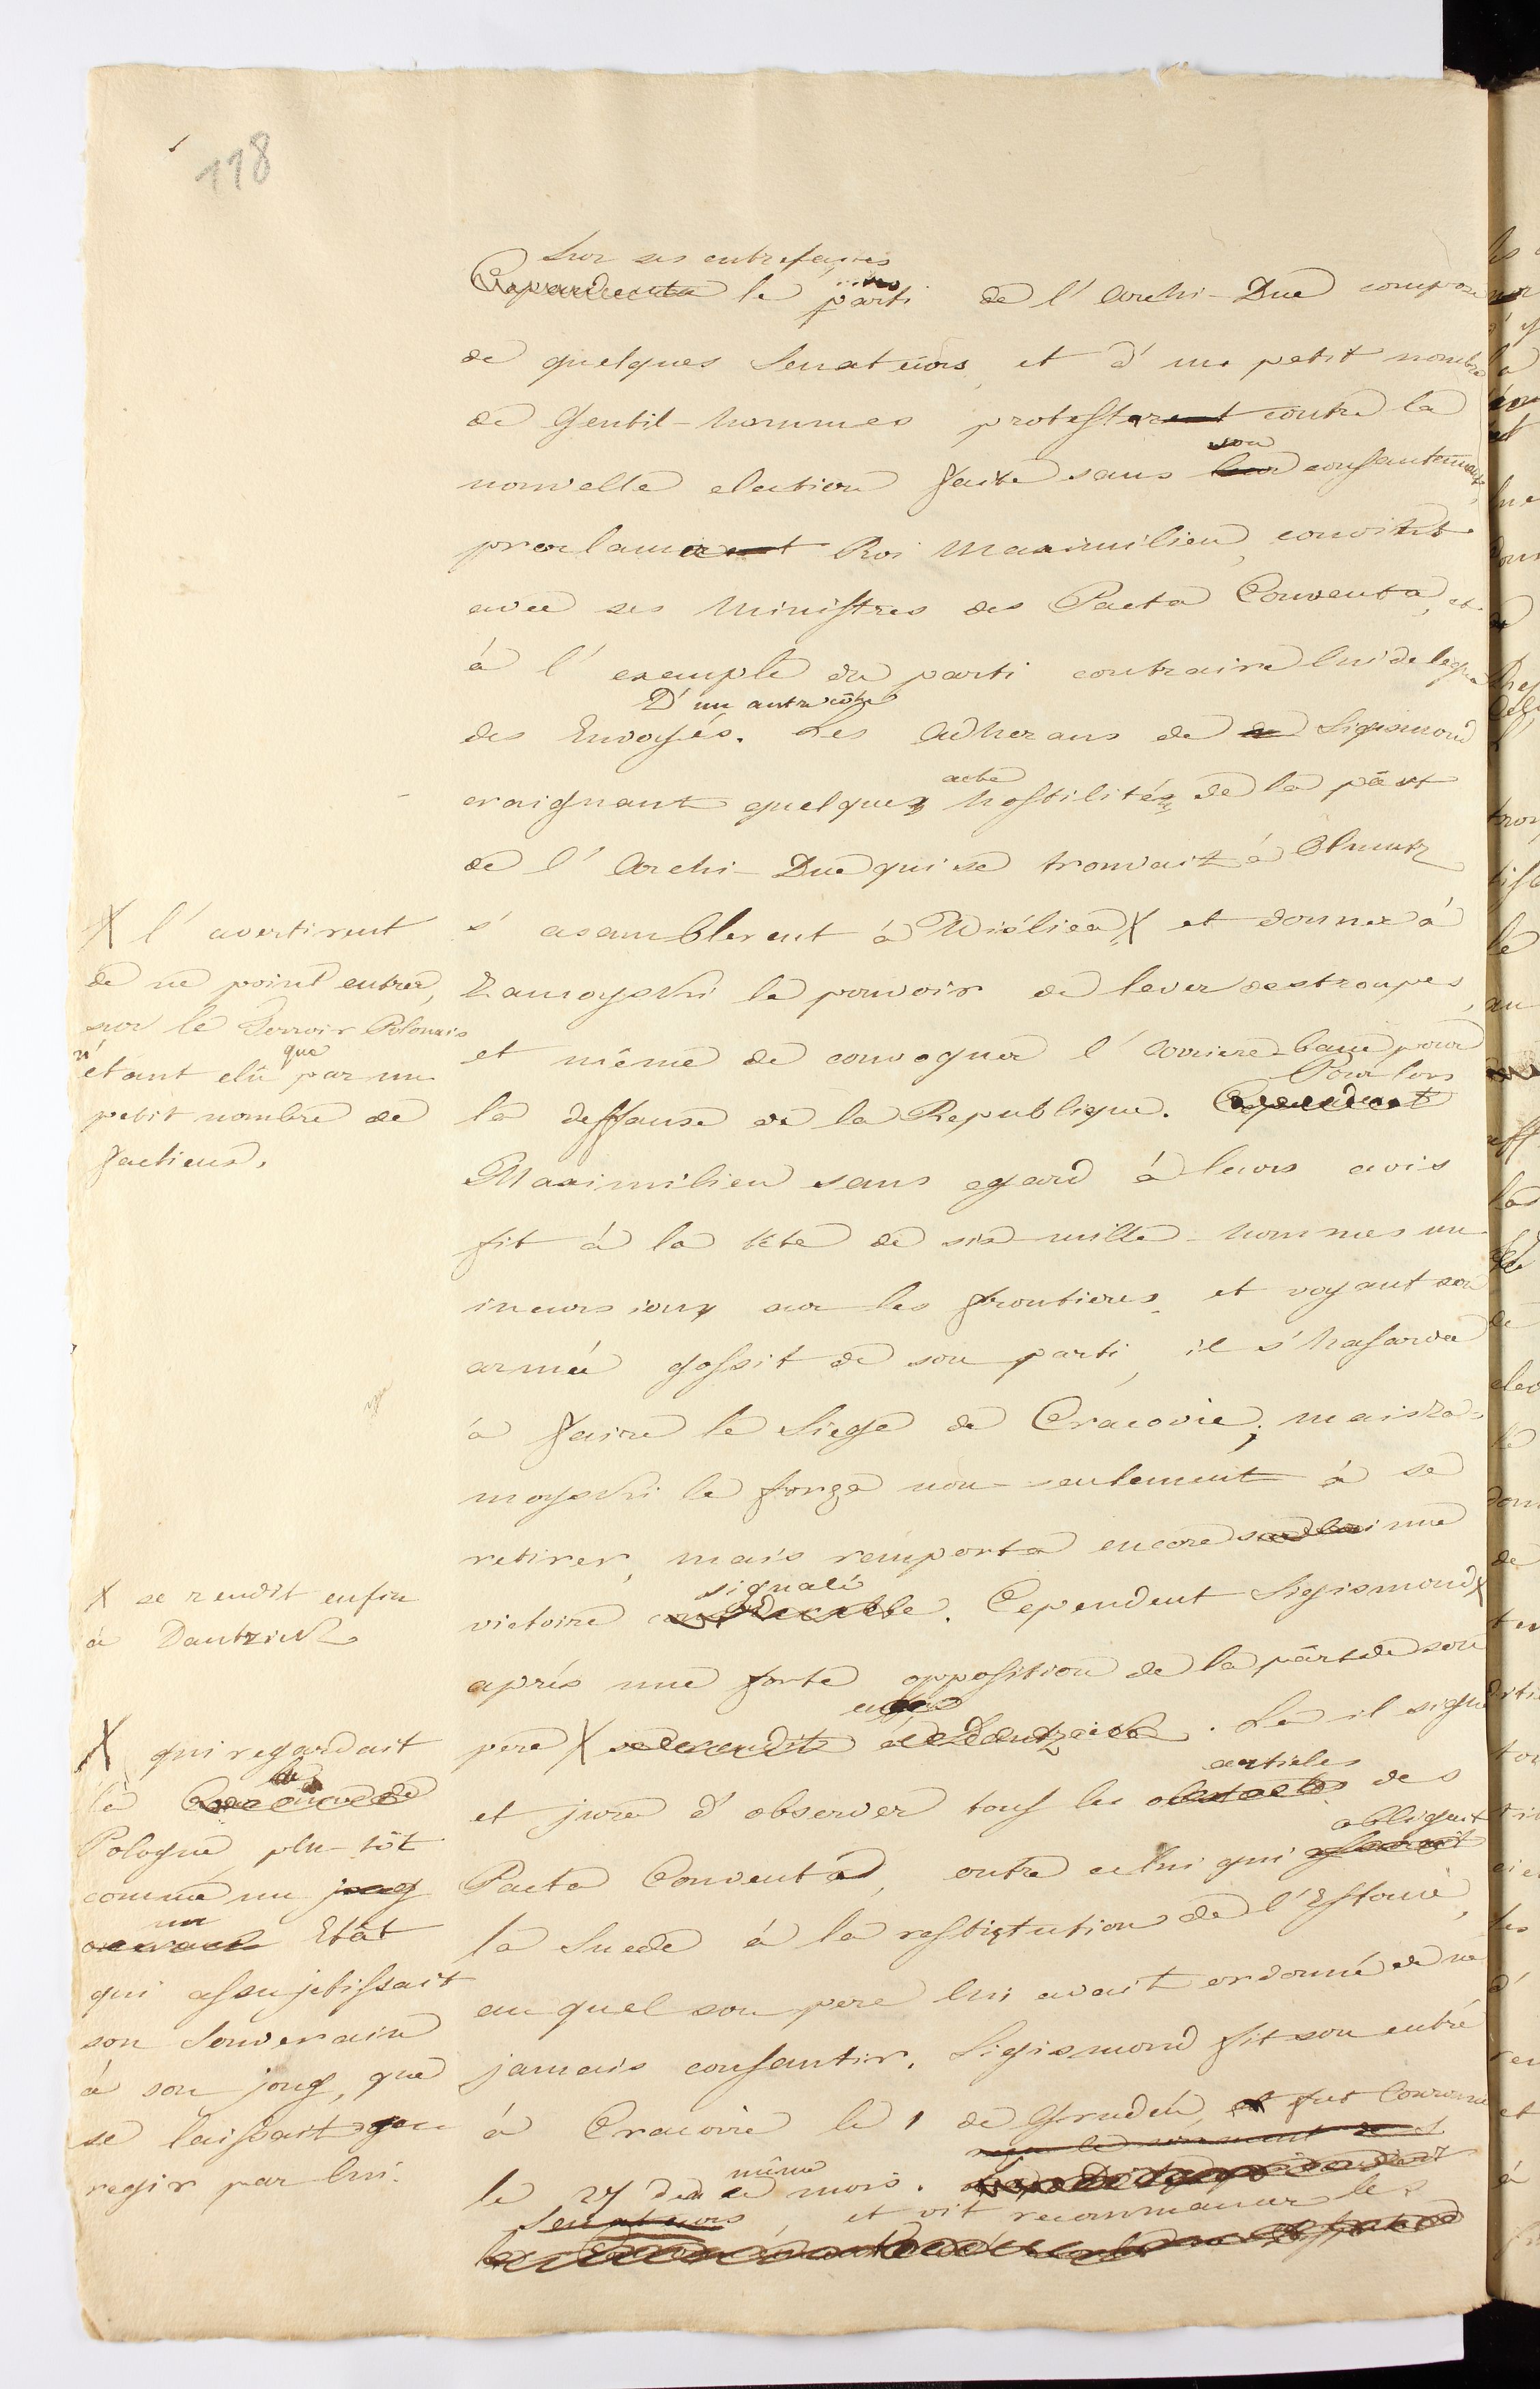 118
Sur ses entrefaites
Cependent le parti de l'Archi-Duc composé
de quelques Senateurs, et d'un petit nombre
de Gentil-hommes protesterent contre la
son
nouvelle election faite sans leur consantement,
proclamerent Roi Maximilien, convint
avec ses Ministres des Pacta Conventa, et
à l'exemple du parti contraire lui delegua
D'un autre côté
des Envoyés. Les Adherans de Sigismond
acte
craignant quelques hostilités de la part
de l'Archi-Duc qui se trouvait à Olmutz
s'asamblerent à Wislica X et donner à
Zamoyski le pouvoir de lever des troupes,
et même de convoquer l'arriere-banc pour
Pour lors
la deffanse de la Republique. Cependent
Maximilien sans egard à leurs avis
fit à la tête de six mille hommes un
incursions sur les frontieres, et voyant son
armée grossit de son parti, il s'hasarda
à faire le Siege de Cracovie; mais Za-
moyski le forza non-seulement à se
retirer, mais remporta encore sur lui une
signalé
victoire considerable. Cependent Sigismond X
aprés une forte opposition de la part de son
pere X se rendit à Dantzick. Là il signa
articles
et jura d'observer tous les des
obligait
Pacta Conventa, outre celui qui
la Suede à la restitution de l'Estonie,
au quel son pere lui avait ordonné de ne
jamais consantir. Sigismond fit son entré
à Cracovie le 1 de Grudeń, et fut Couronné
reçu le serment des
même
le 27 de ce mois.
Senateurs, et vit recommancer les
X l'avertirent
de ne point entrer,
sur le Terroir Polonais
n' que
étant elû par un
petit nombre de
factieux.
X se rendit enfin
à Dantzick
X qui regardait
la Couronne de
Pologne plu-tôt
comme un joug
un
Etât
qui assujetissait
son Souverain
à son joug, que
se laissait
regir par lui.